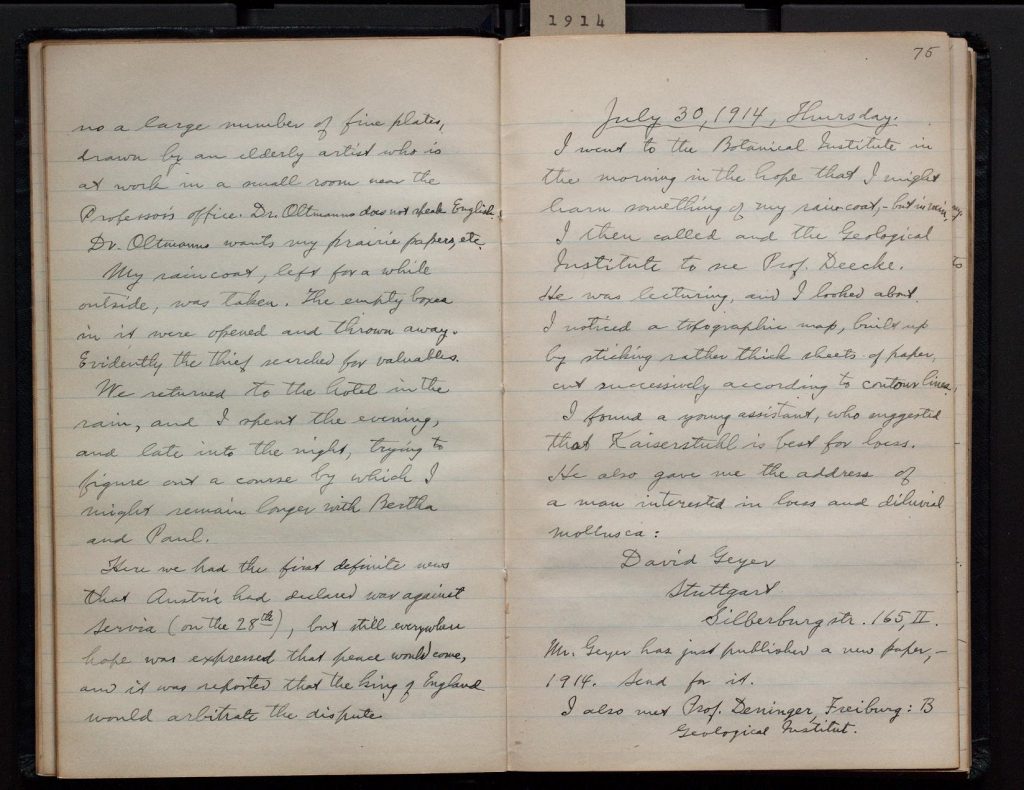 1914
no a large number of fine plates,
drawn by an elderly artist who is
at work in a small room near the
Professor's office. Dr. Oltmanns does not speak English.
Dr. Oltmanns wants my prairie papers, etc.
My raincoat, left for a while
outside, was taken. The empty boxes
in it were opened and thrown away.
Evidently the thief searched for valuables.
We returned to the hotel in the
rain, and I spent the evening,
and late into the night, trying to
figure out a course by which I
might remain longer with Bertha
and Paul.
Here we had the first definite news
that Austria had declared war against
Servia (on the 28th), but still everywhere
hope was expressed that peace would come,
and it was reported that the king of England
would arbitrate the dispute
75
July 30, 1914, Thursday.
I went to the Botanical Institute in
the morning in the hope that I might
learn something of my raincoat, - but in vain.
I then called and the Geological
Institute to see Prof. Deecke.
He was lecturing, and I looked about.
I noticed a topographic map, built up
by sticking rather thick sheets of paper,
cut successively according to contour lines.
I found a young assistant, who suggested
that Kaiserstuhl is best for loess.
He also gave me the address of
a man interested in loess and diluvial
mollusca:
David Geyer
Stuttgart
Silberburgstr. 165, II.
Mr. Geyer has just published a new paper, -
1914. Send for it.
I also met Prof. Deninger, Freiburg: B
Geological Institut.